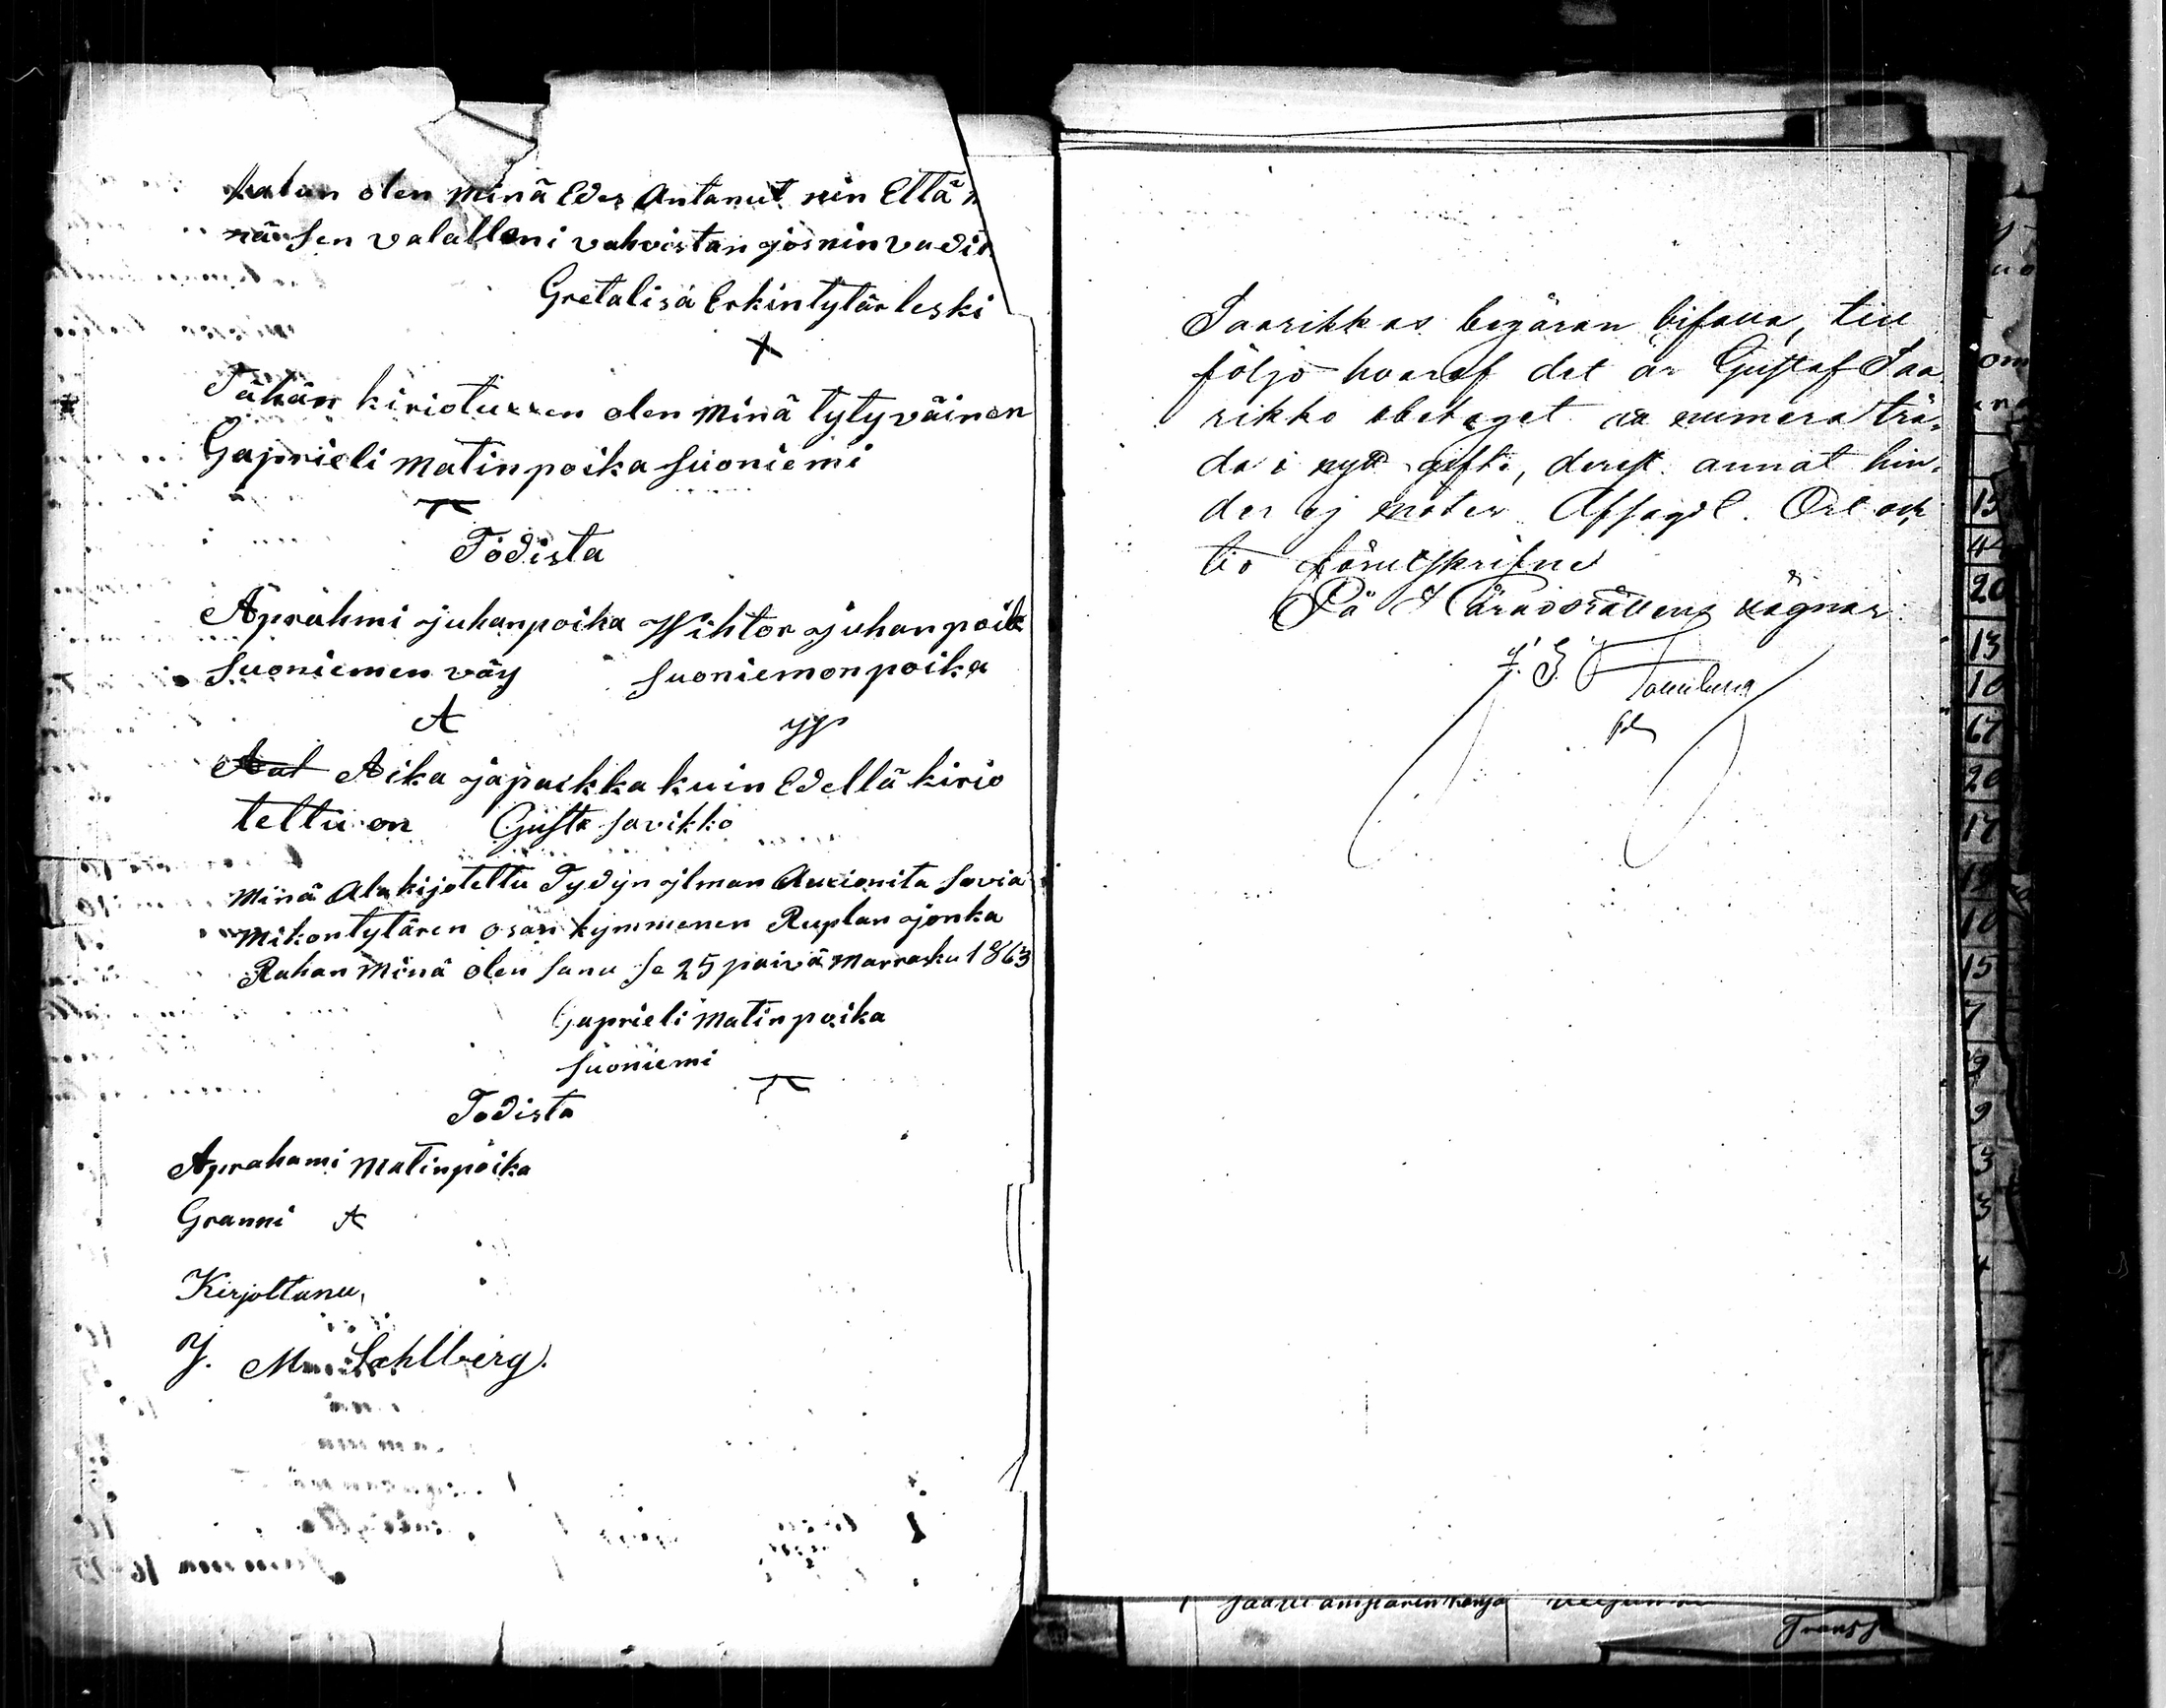 kalun olen minä Edes Antanut nin Että
sen valallani vahvistan jos nin vadit
Gretalisa Erkintytär leski
X
Tähän kirioturren olen minä tytyväinen
Gaprieli Matinpoika Suoniemi
Todista
Aprahmi juhanpoika Wihtor juhanpoik
Suoniemen väy Suoniemenpoika
A
Aat Aika ja paikka kuin Edellä kirio
tettu on Gusta Sarikko
Minä Alakijotettu Tydyn jlman Auxionita Sovia
Mikontytären osan kymmenen Ruplan jonka
Rahan Minä olen Sanu Se 25 päivä Marrasku 1863
Gaprieli Matinpoika
Suoniemi
Todista
Aprahami Matinpoika
Granni A
Kirjottanu,
J. M. Sahlberg.
Saarikkas begäran bifalla, till
följd hvaraf det är Gustaf Saa
rikko obetaget att numera trä-
da i nytt gifte, derest annat hin-
der ej möter. Afsagdt. Ort och
tid förutskrifne
På Häradsrättens vägnar
15
44
20
13
10
67
20
17
10
15
7
9
9
3
3
Transp